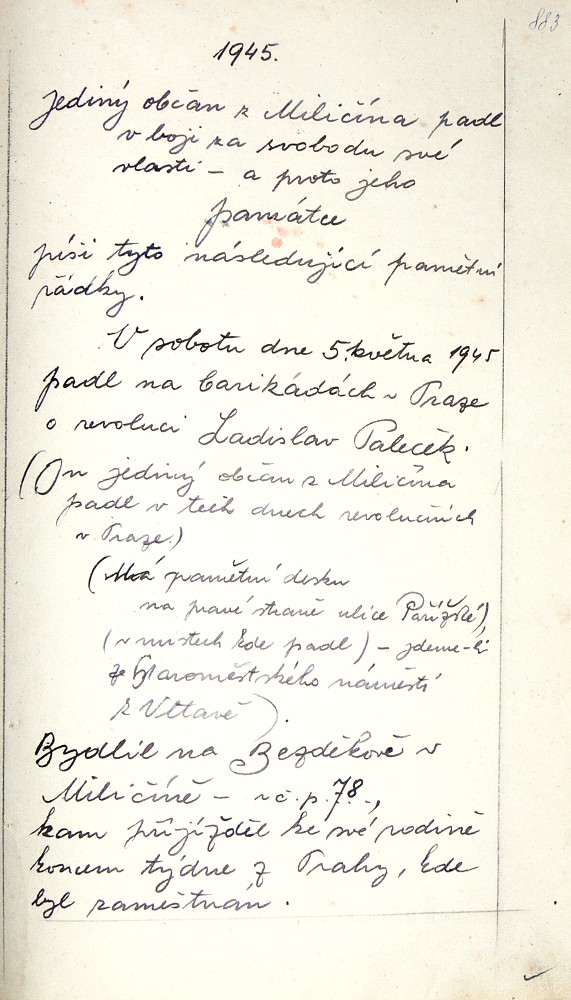 883
1945.
Jediný občan z Miličína padl
v boji za svobodu své
vlasti - a proto jeho
památce
píši tyto následující pamětní
řádky.
V sobotu dne 5. května 1945
padl na barikádách v Praze
o revoluci Ladislav Paleček.
(On jediný občan z Miličína
padl v těch dnech revolučních
v Praze.)
(Má pamětní desku
na pravé straně ulice Pařížské),
(v místech kde padl) - jdeme-li
ze Staroměstského náměstí
k Vltavě).
Bydlil na Bezděkově v
Miličíně - v č.p. 78.,
kam přijížděl ke své rodině
koncem týdne z Prahy, kde
byl zaměstnán.